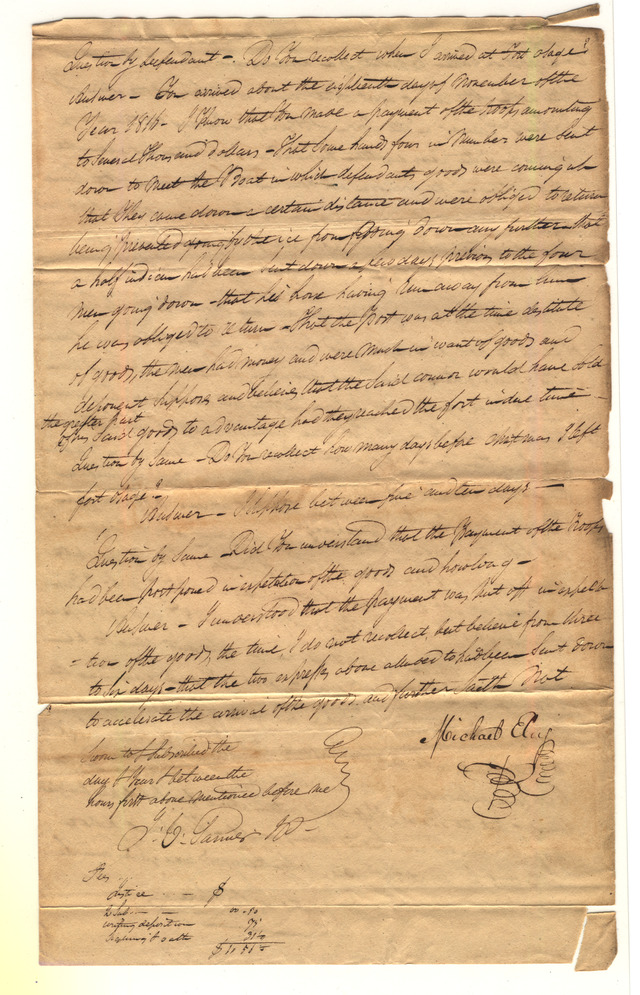 Question by defendant - Do You recollect when I arrived at Fort osage?
Answer - You arrived about the eighteenth day of November of the
Year 1816 - I Know that You made a payment of the troops amounting
to Several thousand Dollars - That Some hands four in Number were Sent
down to meet the Boat in which defendants goods were coming up
that they came down a certain distance and were obliged to return
being prevented by the ice from going down any further that
a half indian had been sent down a few days previous to the four
men going down - that his horse having run away from him
he was obliged to return - that the Post was at the time destitute
of goods, the men had money and were Much in want of goods and
deponent Supposes and believes that the Said connor would have Sold
the greater part
of his said goods to advantage had they reached the fort in due time -
Question by Same - Do You recollect how many days before I left
fort osage?
Answer - I Suppose between five and ten days -
Question by Same - Did You understand that the Payment of the Troops
had been postponed in expectation of the goods and how long -
Answer - I understood that the payment was put off in expecta
-tion of the goods, the time I do not recollect, but believe from three
to Six days - that the two expresses above alluded to had been Sent down
to accelerate the arrival of the goods and further Saith Not
Michael
Sworn to & Subscribed the
day & Year & between the
hours first above mentioned before me
Fees
Justice - $
writing deposition